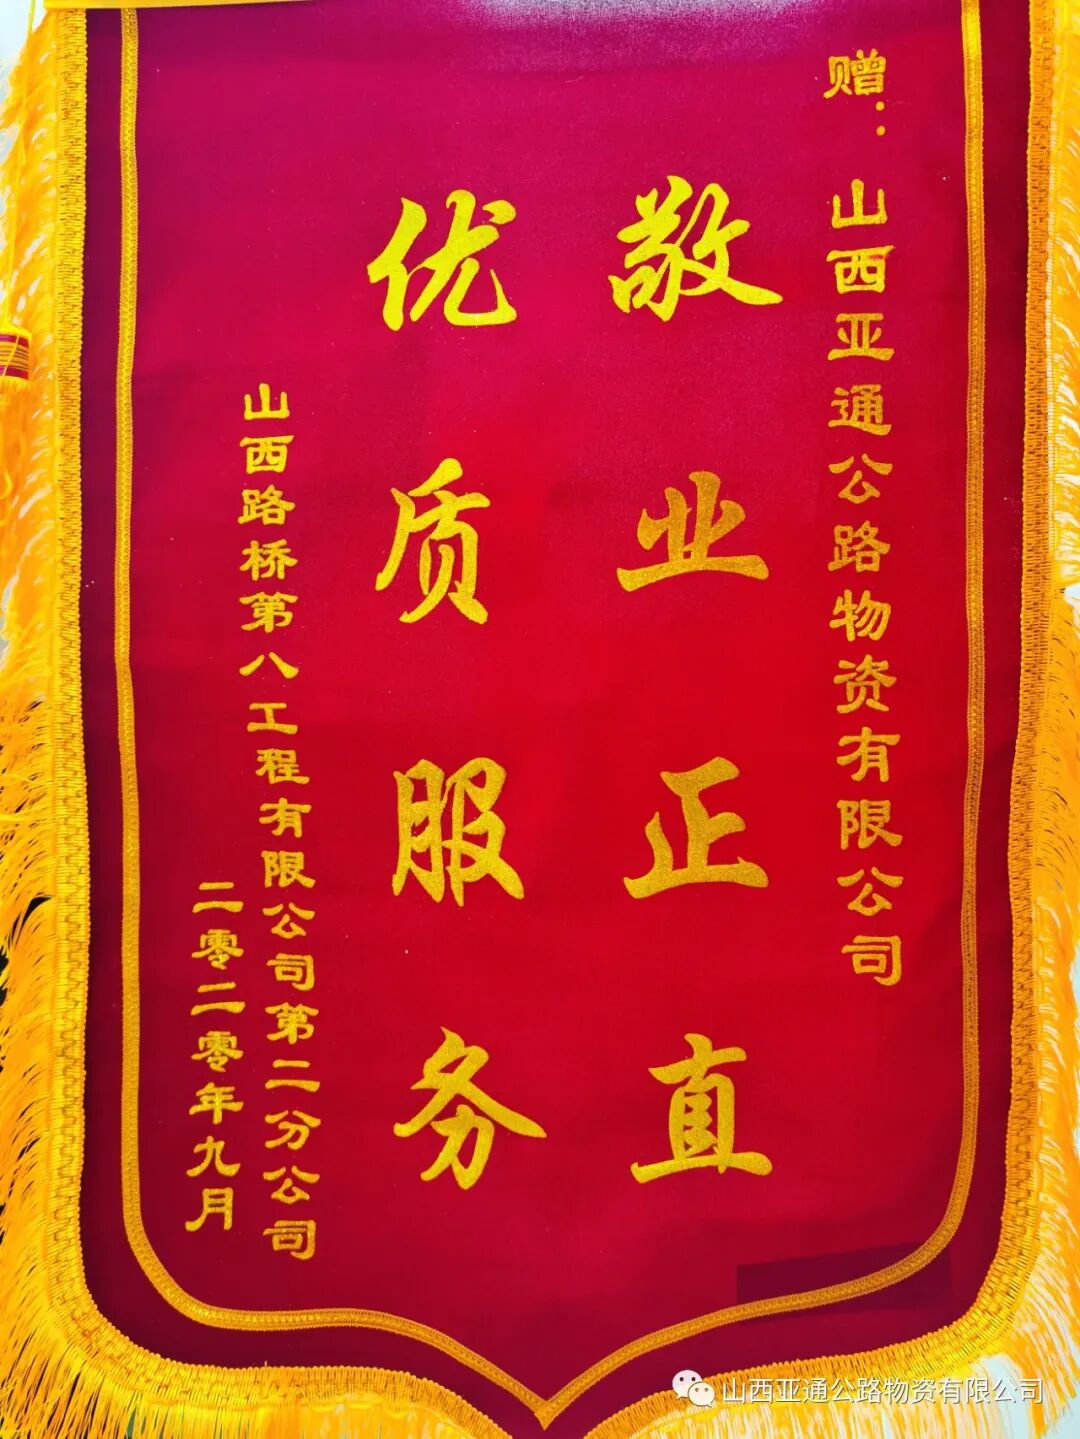 赠：山西亚通公路物资有限公司
敬业正直
优质服务
山西路桥第八工程有限公司第二分公司
二零二零年九月
山西亚通公路物资有限公司